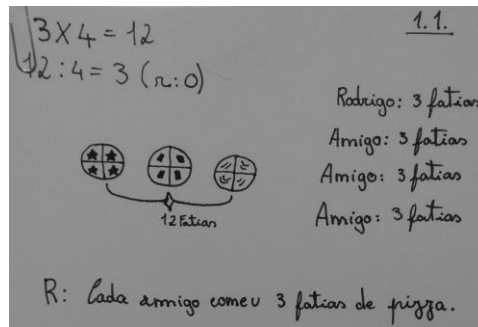 1.1.
3 X 4 = 12
12 : 4 = 3 (r:0)
Rodrigo: 3 fatias
Amigo: 3 fatias
Amigo: 3 fatias
Amigo: 3 fatias
12 Fatias
R: Cada amigo comeu 3 fatias de pizza.